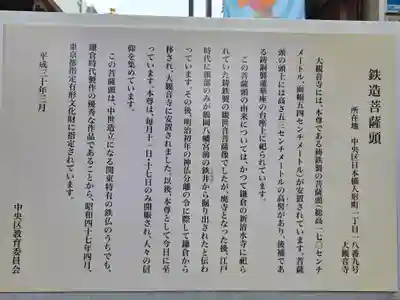 鉄造菩薩頭
所在地　中央区日本橋人形町一丁目一八番九号
大観音寺
大観音寺には、本尊である鋳鉄製の菩薩頭（総高一七〇センチ
メートル、面幅五四センチメートル）が安置されています。菩薩
頭の頭上には高さ五三センチメートルの高髻があり、後補であ
る鋳銅製蓮華座の台座上に祀られています。
この菩薩頭の由来については、かつて鎌倉の新清水寺に祀ら
れていた鋳鉄製の観世音菩薩像でしたが、廃寺となった後、江戸
時代に頭部のみが鶴岡八幡宮前の鉄井から掘り出されたと伝わ
っています。その後、明治初年の神仏分離の令に際して鎌倉から
移され、大観音寺に安置されました。以後、本尊として今日に至
っています。本尊は、毎月十一日・十七日のみ開帳され、人々の信
仰を集めています。
この菩薩頭は、中世造立になる関東特有の鉄仏のうちでも、
鎌倉時代製作の優秀な作品であることから、昭和四十七年四月、
東京都指定有形文化財に指定されています。
平成三十年三月
中央区教育委員会